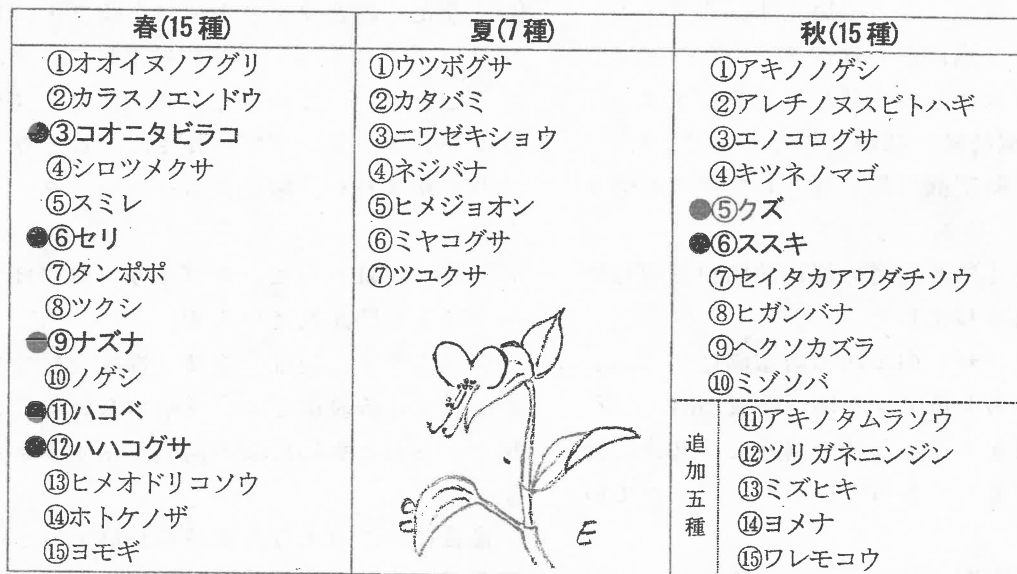 春(15種)
①オオイヌノフグリ
②カラスノエンドウ
●③コオニタビラコ
④シロツメクサ
⑤スミレ
●⑥セリ
⑦タンポポ
⑧ツクシ
●⑨ナズナ
⑩ノゲシ
●⑪ハコベ
●⑫ハハコグサ
⑬ヒメオドリコソウ
⑭ホトケノザ
⑮ヨモギ
夏(7種)
①ウツボグサ
②カタバミ
③ニワゼキショウ
④ネジバナ
⑤ヒメジョオン
⑥ミヤコグサ
⑦ツユクサ
E
秋(15種)
①アキノノゲシ
②アレチノヌスビトハギ
③エノコログサ
④キツネノマゴ
●⑤クズ
●⑥ススキ
⑦セイタカアワダチソウ
⑧ヒガンバナ
⑨ヘクソカズラ
⑩ミゾソバ
追加五種
⑪アキノタムラソウ
⑫ツリガネニンジン
⑬ミズヒキ
⑭ヨメナ
⑮ワレモコウ